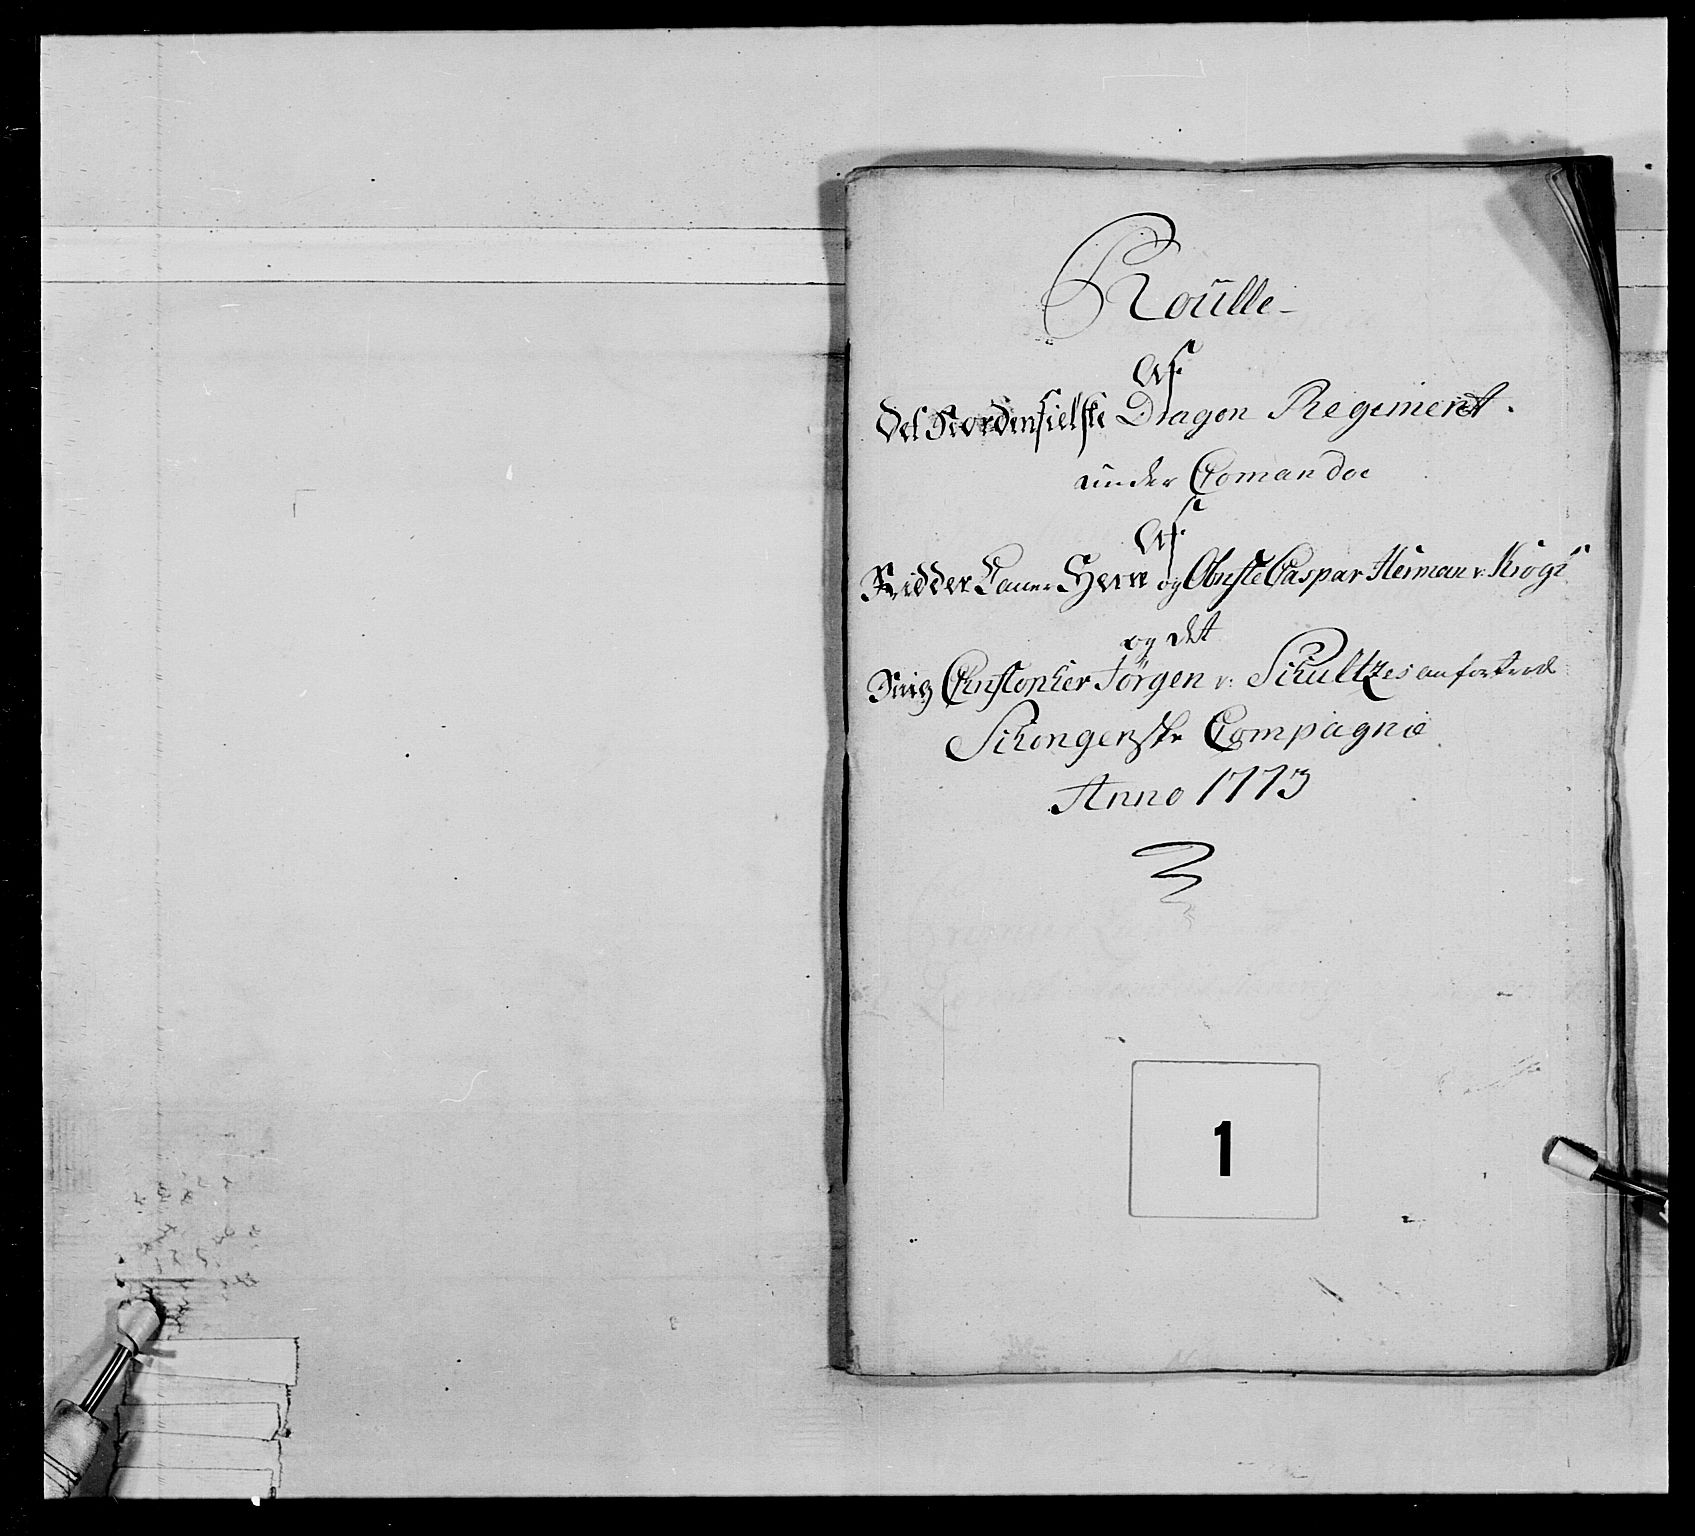 Roülle
Af
Det Nordenfielske Dragon Regiment.
under Comandoe
Af
Ridder Herr og Obriste Caspar Herman v: Krogh
og det
Christopher Jörgen v: Schultzes anfortrode
Schongerske Compagnie
Anno 1773
1